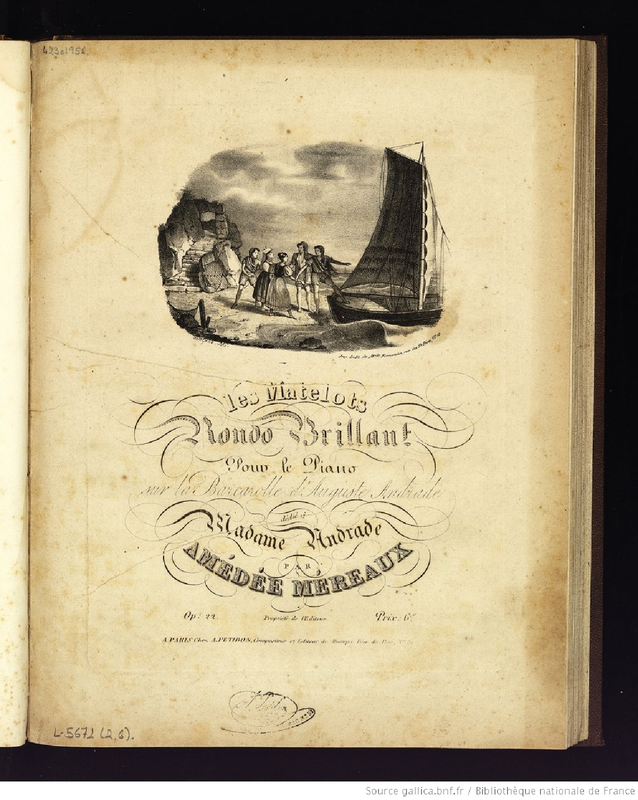 les Matelots
Rondo Brillant
Pour le Piano
sur la Barcarolle d'Auguste Andrade
dédié à
Madame Andrade
PAR
AMÉDÉE MÉREAUX
Op: 22.
Propriété de l'Editeur
Prix: 6f.
A PARIS Chez A. PETIBON, Compositeur et Editeur de Musique, Rue du Bac,
L-5671 (2,6).
Source gallica.bnf.fr / Bibliothèque nationale de France